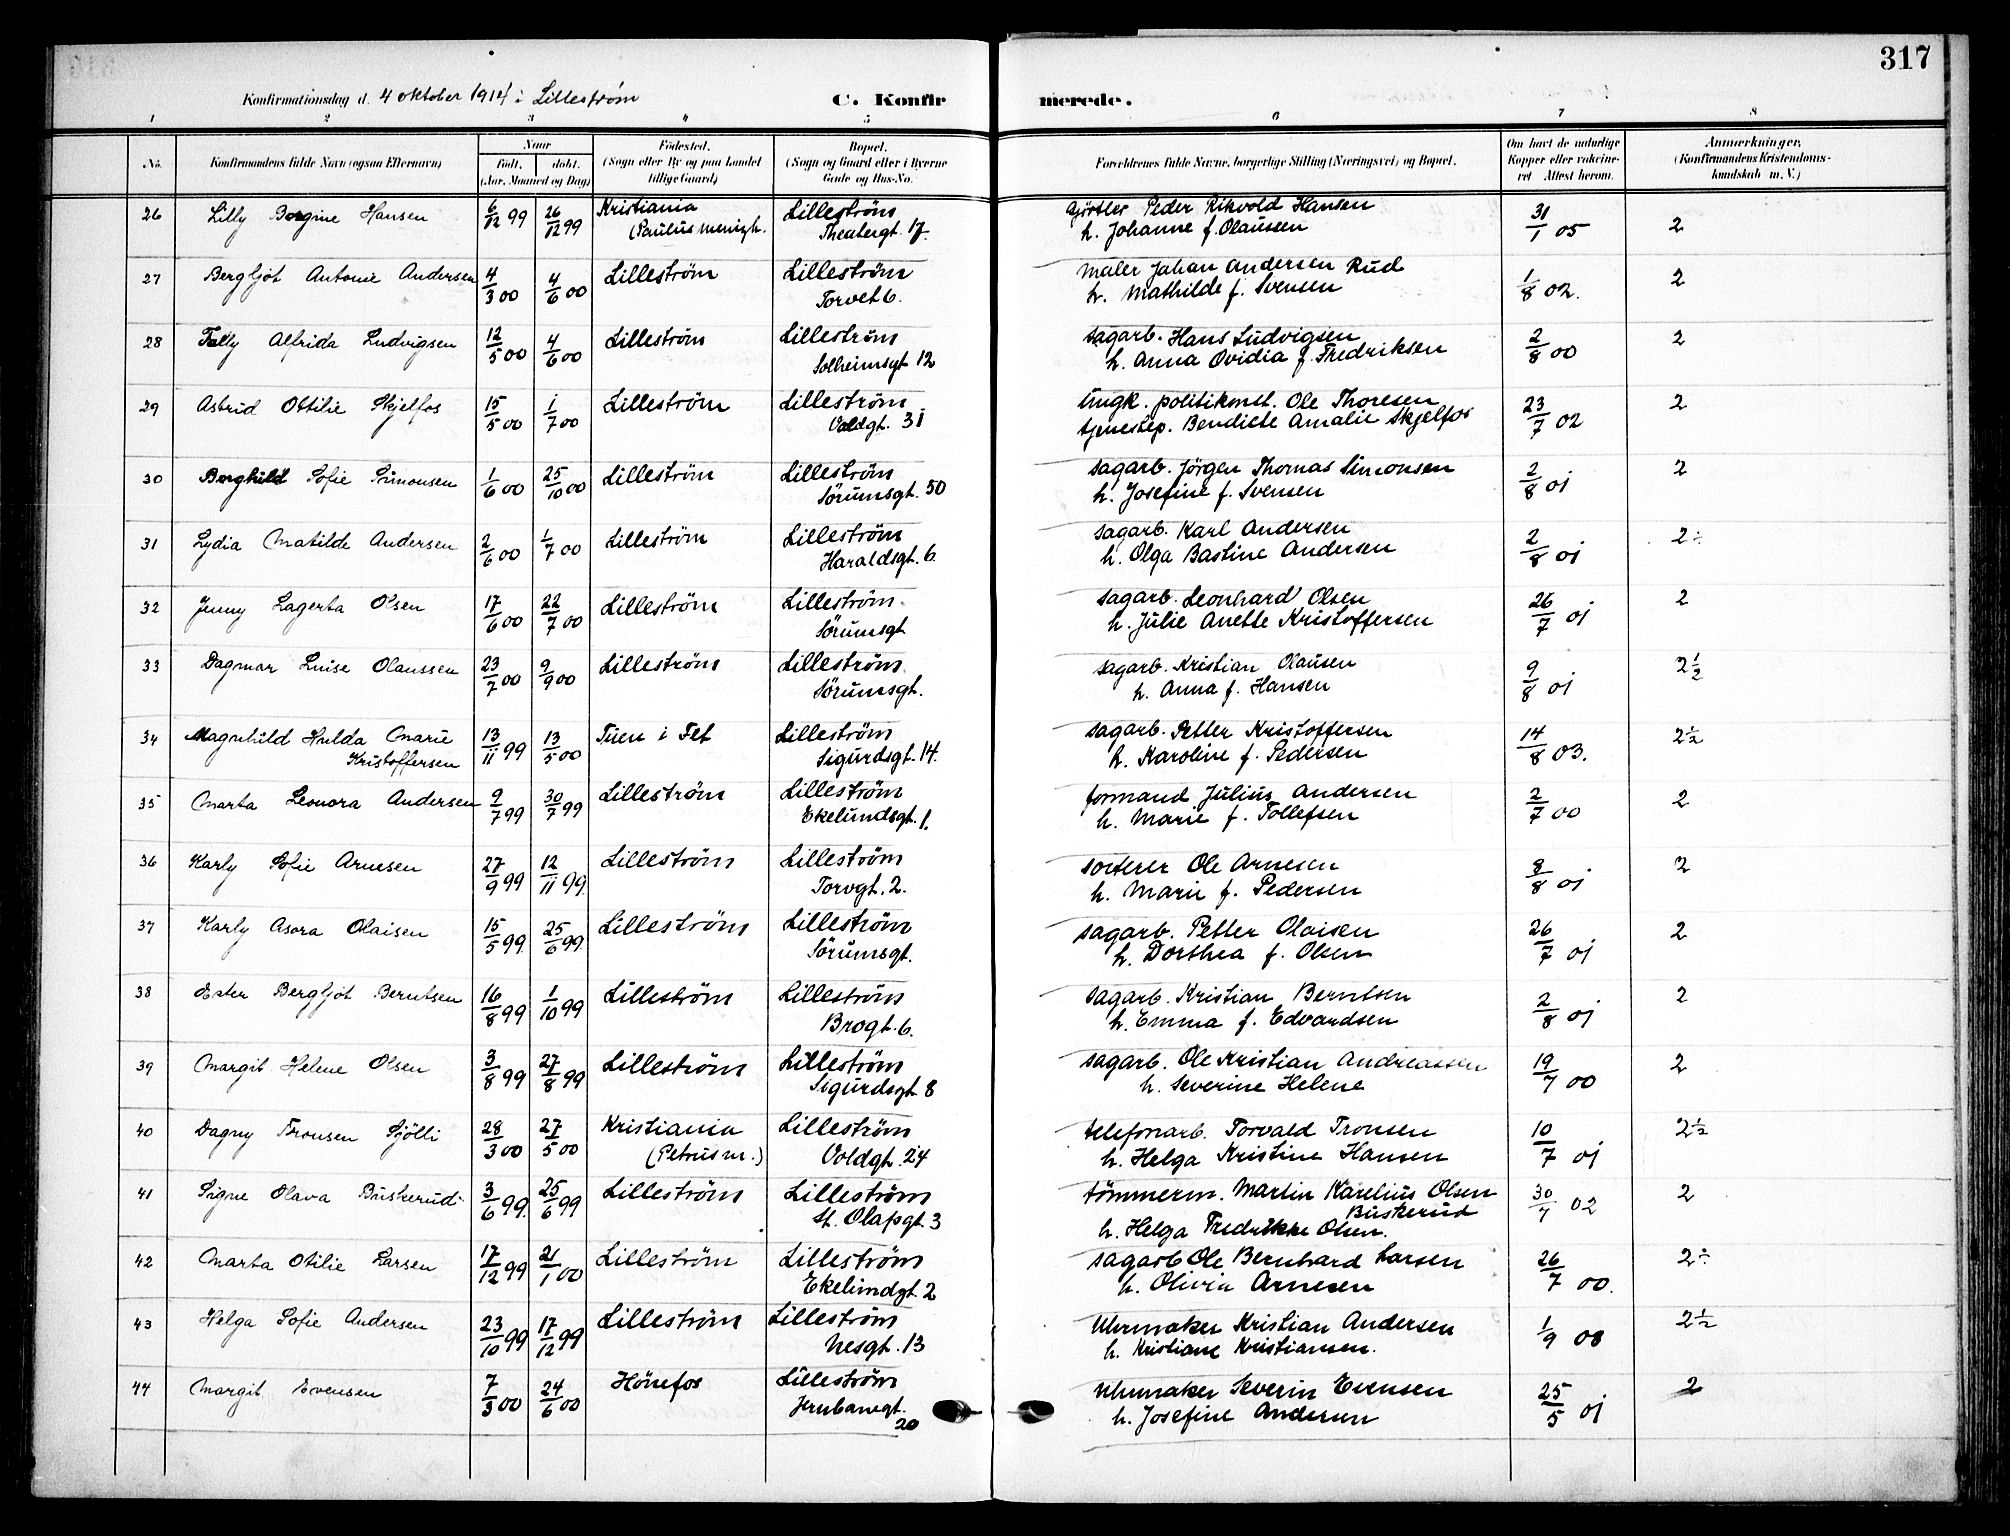 317
Konfirmationsdag d. 4 oktober 1914 i Lilleström C. Konfirmerede.
1 2 3 4 5 6 7 8
No. Konfirmandens fulde Navn (ogsaa Efternavn) Naar født. døbt. (Aar, Maaned og Dag) Fødested. (Sogn eller By og paa Landet tillige Gaard) Bopæl. (Sogn og Gaard eller i Byerne Gade og Hus-No. Forældrenes fulde Navne, borgerlige Stilling (Næringsvei) og Bopæl. Om havt de naturlige Kopper eller vakcineret. Attest herom. Anmærkninger, (Konfirmandens Kristendomskundskab m. V.)
26 Lilly Borgine Hansen 6/12 99 26/12 99 Kristiania Lilleström Gjörtler Peder Rikvold Hansen 31/1 05 2
(Paulus menigh. Theatergt. 17. h. Johanne f. Olausen
27 Bergljot Antonie Andersen 4/3 00 4/6 00 Lilleström Lilleström Maler Johan Andersen Rud 1/8 02. 2
Torvet 6. h. Mathilde f. Svensen
28 Felly Alfrida Ludvigsen 12/5 00 4/6 00 Lilleström Lilleström sagarb. Hans Ludvigsen 2/8 00 2
Solheimsgt 12 h. Anna Ovidia f. Fredriksen
29 Astrid Ottilie Skjelfos 15/5 00 1/7 00 Lilleström Lilleström Ungk. politikonst. Ole Thoresen 23/7 02 2
Voldgt. 31 tjenestep. Bendicte Amalie Skjelfos
30 Borghild Sofie Simonsen 1/6 00 25/10 00 Lilleström Lilleström sagarb. Jörgen Thomas Simonsen 2/8 01 2
Sörumsgt. 50 h. Josefine f. Svensen
31 Lydia Matilde Andersen 2/6 00 1/7 00 Lilleström Lilleström sagarb. Karl Andersen 2/8 01 2÷
Haraldsgt. 6. h. Olga Bastine Andersen
32 Jenny Lagerta Olsen 17/6 00 22/7 00 Lilleström Lilleström. sagarb. Leonhard Olsen 26/7 01 2
Sörumsgt h. Julie Anette Kristoffersen
33 Dagmar Luise Olaussen 23/7 00 9/9 00 Lilleström Lilleström. sagarb. Kristian Olausen 9/8 01 2 1/2
Sörumsgt. h. Anna f. Hansen
34 Magnhild Hulda Marie 13/11 99 13/5 00 Tuen i Fet Lilleström sagarb. Petter Kristoffersen 14/8 03. 2 1/2
Kristoffersen Sigurdsgt. 14. h. Karoline f. Pedersen
35 Marta Leonora Andersen 9/7 99 30/7 99 Lilleström Lilleström formand Julius Andersen 2/7 00 2
Ekelundsgt. 1. h. Marie f. Tollefsen
36 Karly Sofie Arnesen 27/9 99 12/11 99. Lilleström Lilleström sorterer Ole Arnesen 8/8 01 2
Torvgt. 2. h. Marie f. Pedersen
37 Karly Asora Olaisen 15/5 99. 25/6 99. Lilleström Lilleström sagarb. Petter Olaisen 26/7 01 2
Sörumsgt. h. Dorthea f. Olsen
38 Ester Bergljot Berntsen 16/8 99 1/10 99 Lilleström Lilleström sagarb. Kristian Berntsen 2/8 01 2
Brogt. 6. h. Emma f. Edvardsen
39 Margit Helene Olsen 3/8 99 27/8 99 Lilleström Lilleström sagarb. Ole Kristian Andreassen 19/7 00 2
Sigurdsgt 8 h. Severine Helene
40 Dagny Tronsen Sjölli 28/3 00 27/5 00 Kristiania Lilleström telefonarb. Torvald Tronsen 10/7 01 2 1/2
(Petrus m.) Voldgt. 24 h. Helga Kristine Hansen
41 Signe Olava Buskerud 3/6 99. 25/6 99 Lilleström Lilleström tömmerm. Martin Karelius Olsen 30/7 02 2
St. Olafsgt. 3 Buskerud
h. Helga Fredrikke Olsen.
42 Marta Otilie Larsen 17/12 99 21/1 00 Lilleström Lilleström sagarb Ole Bernhard Larsen 26/7 00. 2÷
Ekelundgt 2 h. Olivia Arnesen
43 Helga Sofie Andersen 23/10 99 17/12 99 Lilleström Lilleström Uhrmaker Kristian Andersen 1/9 08 2 1/2
Nesgt. 13 h. Kristiane Kristiansen.
44 Margit Evensen 7/3 00 24/6 00 Hönefos Lilleström Uhrmaker Severin Evensen 25/5 01 2
Jernbanegt. h. Josefine Andersen
20